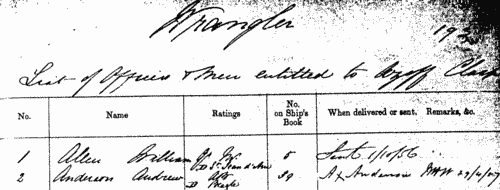 Wrangler
List of Officers & Men entitled to Azoff Clasp
No. Name Ratings No. on Ship's Book When delivered or sent. Remarks, &c.
1 Allen William 5 Sent 1/10/56
2 Anderson Andrew AB 39 Anderson